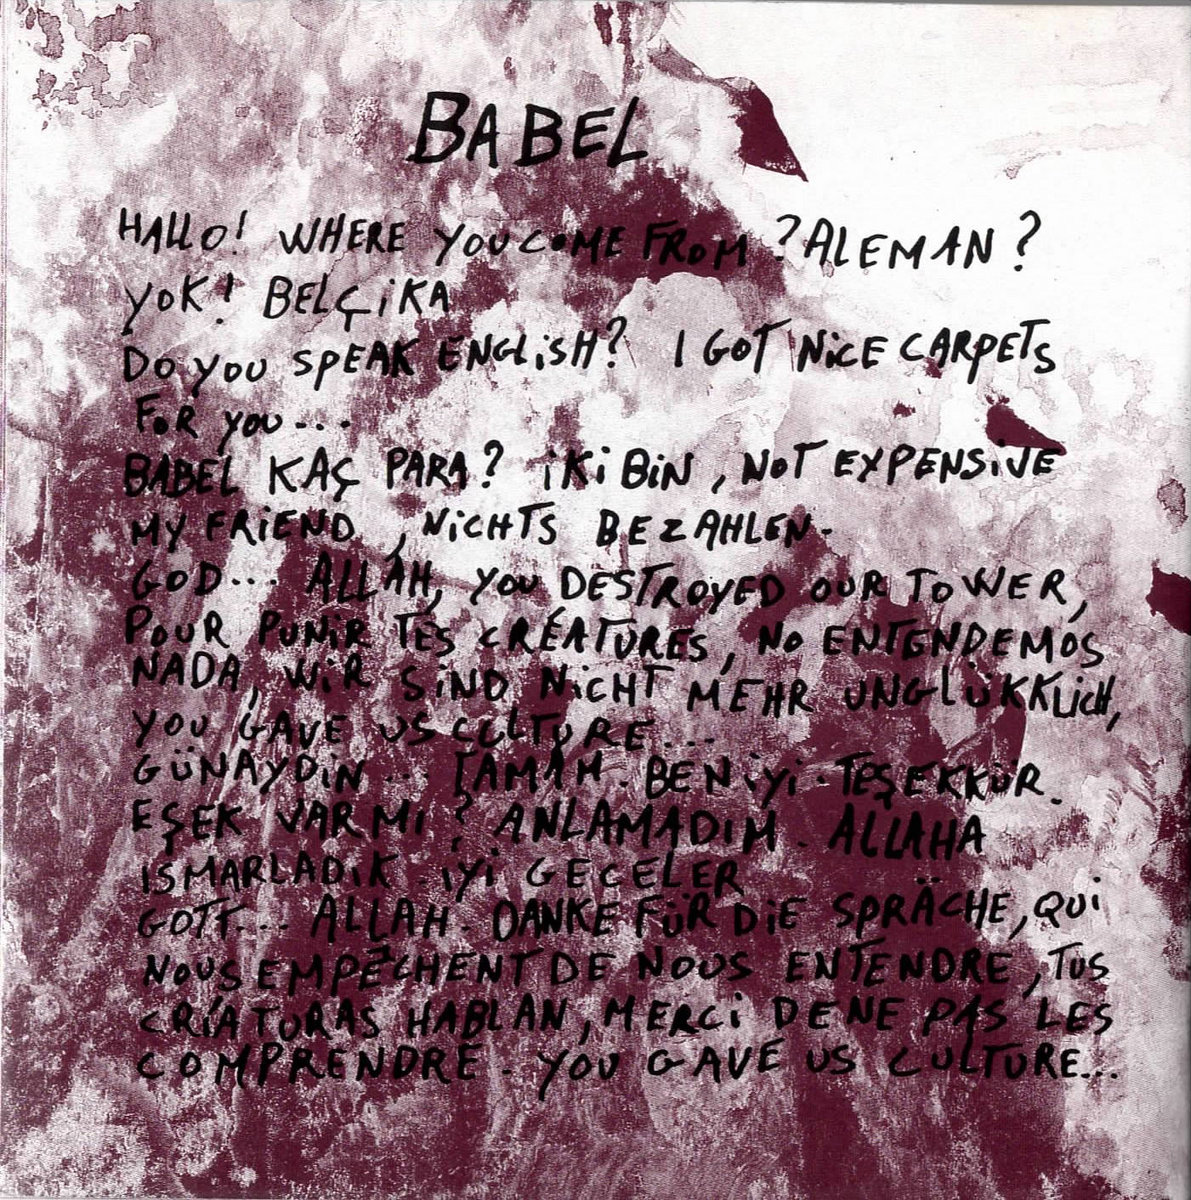 BABEL
HALLO! WHERE YOU COME FROM ? ALEMAN ?
YOK! BELÇİKA
DO YOU SPEAK ENGLİSH? I GOT NİCE CARPETS
FOR YOU...
BABEL KAÇ PARA? İKİ BİN, NOT EXPENSİVE
MY FRİEND, NİCHTS BEZAHLEN.
GOD... ALLAH, YOU DESTROYED OUR TOWER,
POUR PUNİR TES CRÉATURES, NO ENTENDEMOS
NADA, WİR SİND NİCHT MEHR UNGLÜKKLİCH,
YOU GAVE US CULTURE...
GÜNAYDİN... TAMAM. BEN İYİ. TEŞEKKÜR.
EŞEK VAR MI? ANLAMADIM. ALLAHA
ISMARLADİK. İYİ GECELER
GOTT... ALLAH. DANKE FÜR DİE SPRÄCHE, QUİ
NOUS EMPÊCHENT DE NOUS ENTENDRE, TUS
CRÍATURAS HABLAN, MERCİ DE NE PAS LES
COMPRENDRE. YOU GAVE US CULTURE...